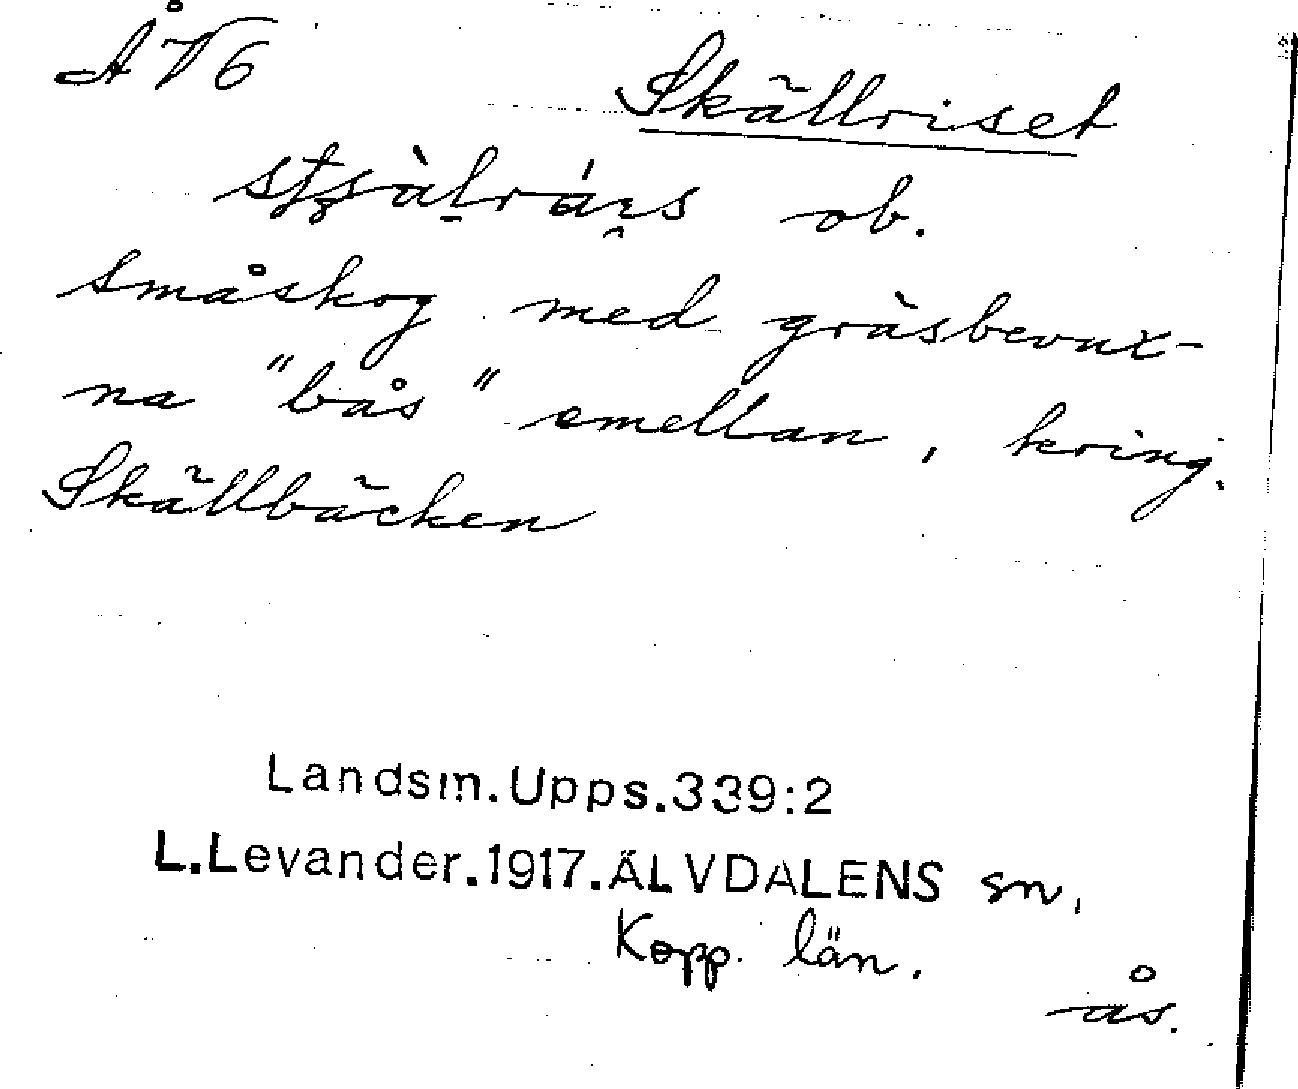 ÅV6
Skällriset
ob.
småskog med gräsbevux-
na "bås" emellan, kring
Skällbäcken
Landsm.Upps.339:2
L.Levander.1917.ÄLVDALENS sn,
Kopp. län.
ås.